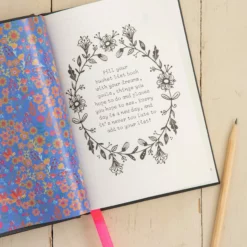 Fill your
bucket list book
with your dreams,
goals, things you
hope to do and places
you hope to see. Every
day is a new day, and
it's never too late to
add to your list!